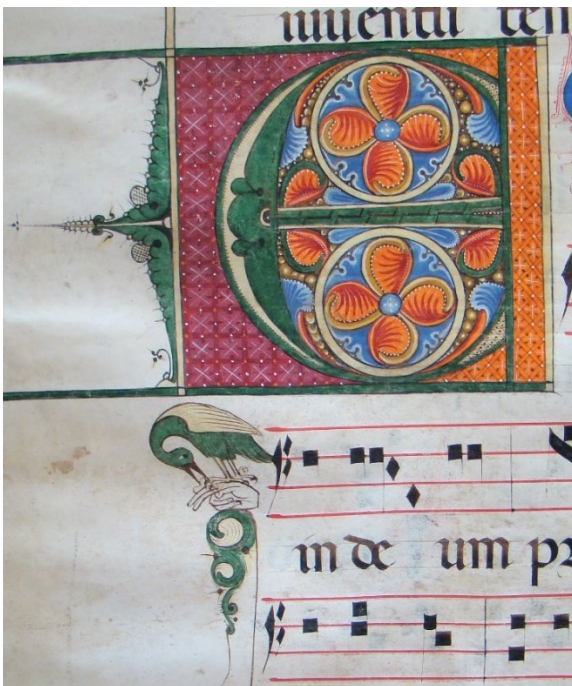 iuuentu tem
E
in de um pr